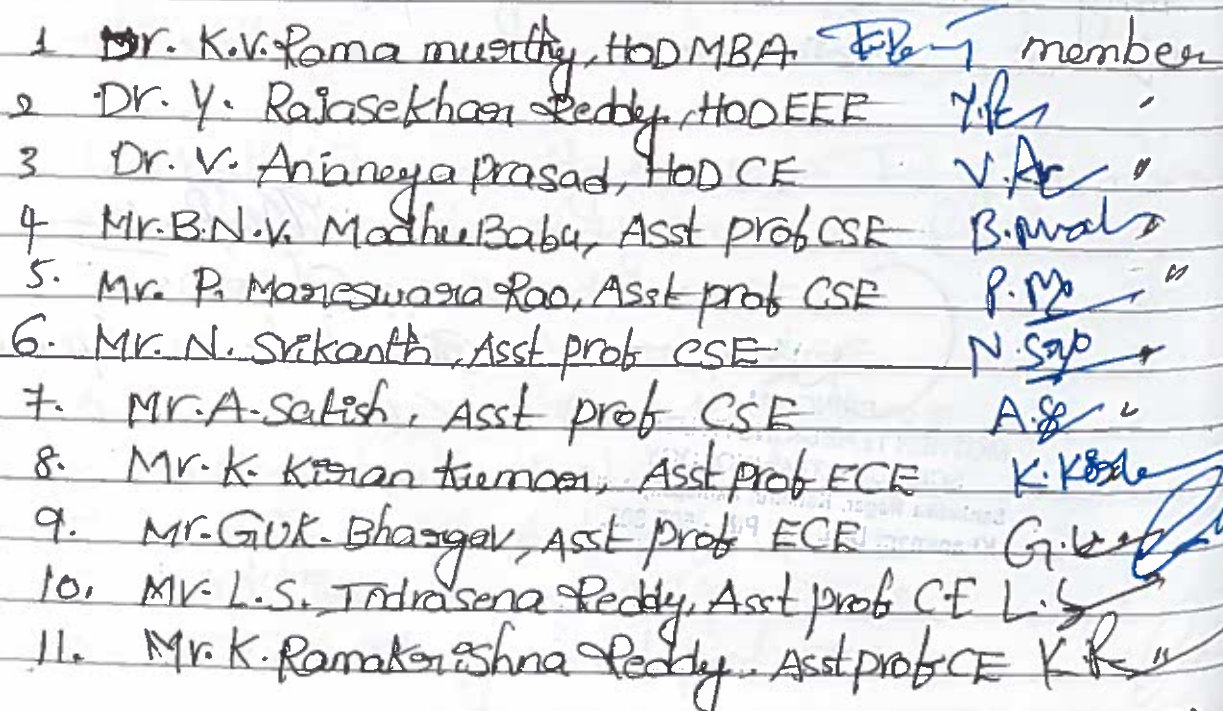 1 Dr. K.V. Rama murthy, HOD MBA. member
2 Dr. Y. Rajasekhar Reddy, HOD EEE "
3 Dr. V. Anjaneya prasad, HOD CE V. "
4 Mr. B.N.V. Madhu Babu, Asst prof CSE B. "
5. Mr. P. Maneswara Rao, Asst prof CSE P. "
6. Mr. N. Srikanth, Asst prof CSE N. "
7. Mr. A. Satish, Asst prof CSE A. "
8. Mr. K. Kiran kumar, Asst Prof ECE K.
9. Mr. GVK. Bhargav, Asst Prof ECE G.
10. Mr. L.S. Indrasena Reddy, Asst prof CE L.S
11. Mr. K. Ramakrishna Reddy. Asst prof CE K R "